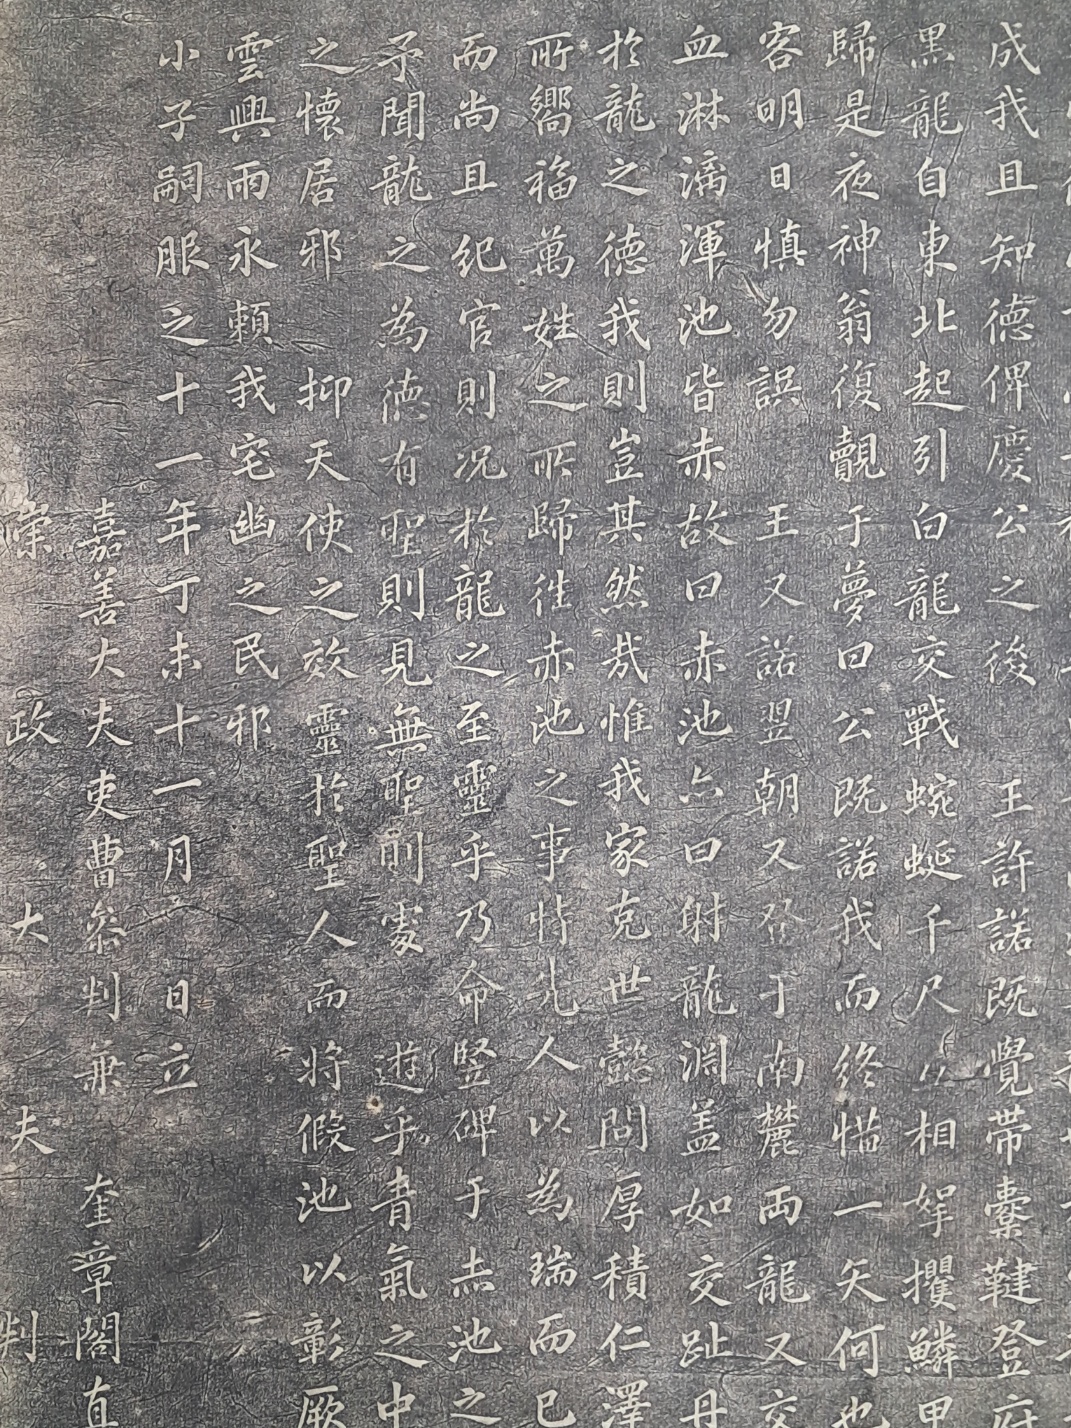 成我且知德俾慶公之後 王許諾既覺帶櫜鞬登
黑龍自東北起引白龍交戰蜿蜒千尺 相挐攫鱗甲
歸是夜神翁復覿于夢曰公既諾我而終惜一矢何也
客明日慎勿誤 王又諾翌朝又登于南麓兩龍又交
血淋漓渾池皆赤故曰赤池亦曰射龍淵盖如交趾丹
於龍之德我則豈其然哉惟我家克世懿問厚積仁澤
所嚮福萬姓之所歸徃赤池之事特先人以為瑞而已
而尚且紀官則况於龍之至靈乎乃命竪碑于赤池之
予聞龍之為德有聖則見無聖則䖏 遊乎青氣之中
之懷居邪 抑天使之效靈於聖人而將假池以彰厥
雲興雨永賴我宅幽之民邪
小子嗣服之十一年丁未十一月 日立
嘉善大夫吏曹叅判兼 奎章閣直
崇 政 大 夫 判